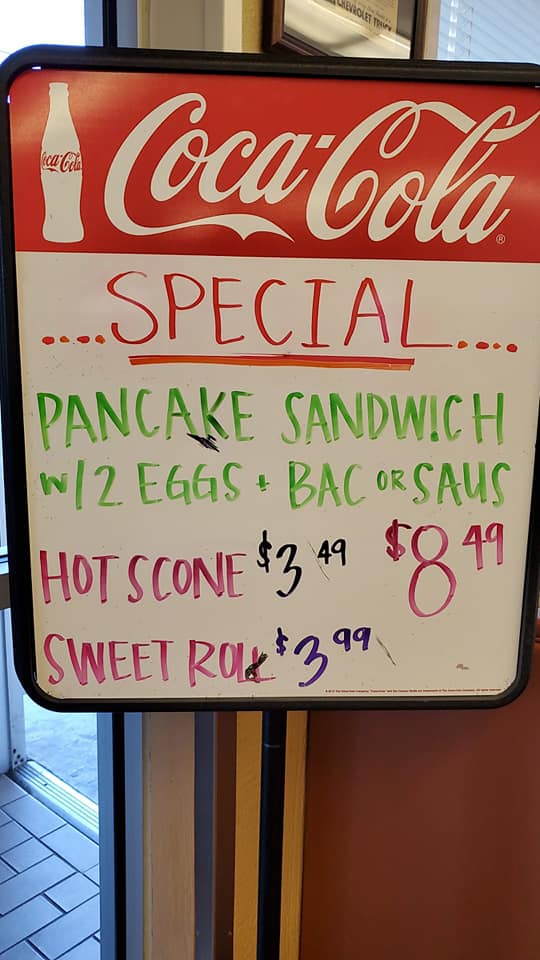 CHEVROLET TRUCK
Coca-Cola
Coca-Cola®
....SPECIAL....
PANCAKE SANDWICH
w/2 EGGS + BAC OR SAUS
$8 49
HOT SCONE $3 49
SWEET ROLL $3 99